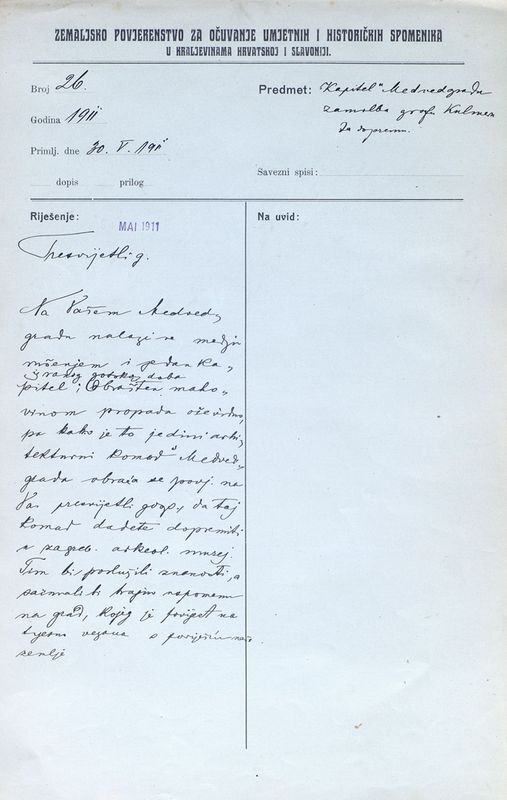 ZEMALJSKO POVJERENSTVO ZA OČUVANJE UMJETNIH I HISTORIČKIH SPOMENIKA
U KRALJEVINAMA HRVATSKOJ I SLAVONIJI.
Broj 26.
Godina 1911
Primlj. dne 30. V. 1911
dopis prilog
Predmet: „Kapitel" Medvedgrada
zamolba grofu Kulmeru
za dopremu.
Savezni spisi:
Riješenje:
MAI 1911
Na uvid:
Presvijetli g.
Na Vašem Medved„
gradu nalazi se medju
ruševnjem i jedan ka„
iz ranog gotskog doba
pitel; Obrašten maho„
vinom propada očevidno,
pa kako je to jedini arhi„
tekturni komad Medved„
grada obraća se povj. na
Vas presvijetli gosp., da taj
komad dadete dopremiti
u zagreb. arkeol. muzej.
Tim bi poslužili znanosti, a
sačuvali bi trajnu uspomenu
na grad, kojeg je povijest na
tijesno vezana s poviješću naše
zemlje